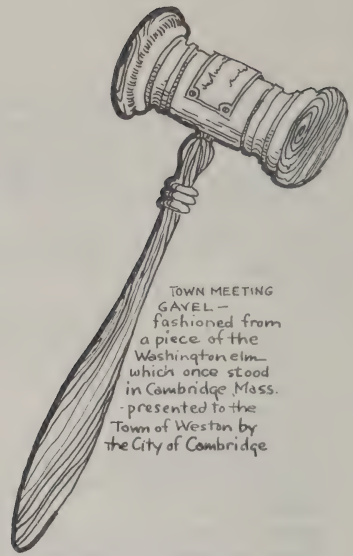 TOWN MEETING
GAVEL —
fashioned from
a piece of the
Washington elm
which once stood
in Cambridge, Mass.
presented to the
Town of Weston by
the City of Cambridge